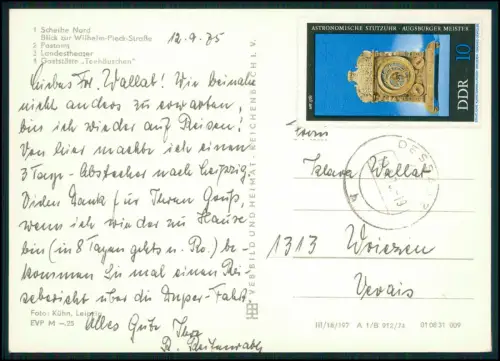 1 Scheibe Nord
Blick zur Wilhelm-Pieck-Straße
2 Postamt
3 Landestheater
4 Gaststätte „Teehäuschen"
12.9.75
Liebes Frl. Wallat! Wie beinahe
nicht anders zu erwarten,
bin ich wieder auf Reisen!
Von hier machte ich einen
3 Tage-Abstecher nach Leipzig.
Vielen Dank für Ihren Gruß,
wenn ich wieder zu Hause
bin (in 8 Tagen gehts n. Ro.) be-
kommen Sie mal einen Rei-
sebericht über die
Alles Gute Ihre
Foto: Kühn, Leipzig
EVP M –,25
VEB BILD UND HEIMAT · REICHENBACH I. V.
ASTRONOMISCHE STUTZUHR · AUGSBURGER MEISTER
um 1560
DDR 10
DESSAU 2
Klara Wallat
1313 Wriezen
III/18/197 A 1/B 912/74 01 08 31 009